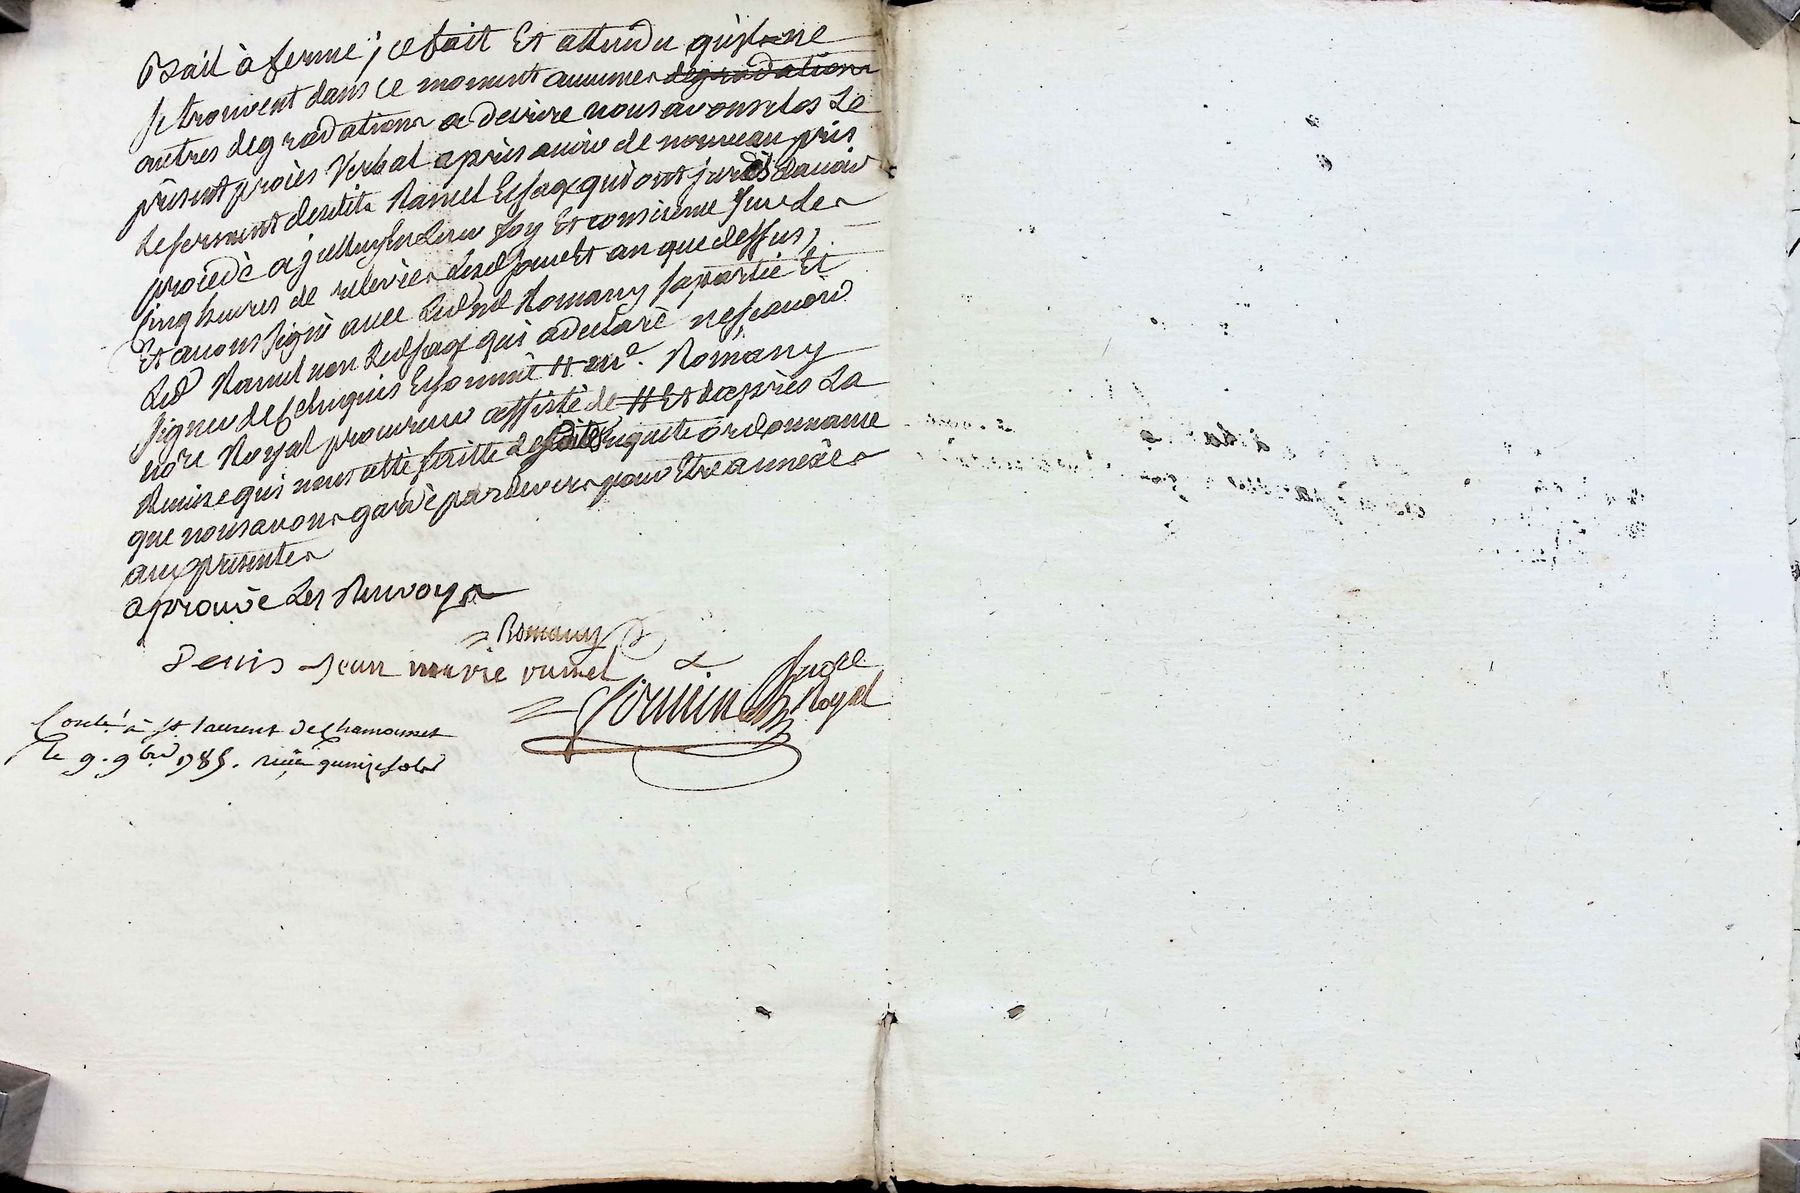 Bail à ferme; ce fait Et attendu qu'il ne
se trouvent dans ce moment aucunes degradations
autres degradations a decrire nous avons clos Le
présent procès Verbal après avoir de nouveau pris
Le serment desdits Ramel Et sage qui ont jurés davoir
procedé a jcelluy En Leur foy Et conscience sur les
Cinq heures de relevée desd jour Et an que dessus,
Et avons signé avec Led me Romany sa partie Et
Led Ramel non Led sage qui a declaré ne scavoir
signer de Ce Enquis Et sommé # me. Romany
no.re Royal procureur assisté de # Et daprès La
Remise qui nous a été faitte desdites requete ordonnance
que nous avons gardé par devers pour Etre annexées
aux presentes
aprouvé Les Renvoys
Romany
Denis jean marie ramel
no.re
Royal
Conté à St. laurent de Chamousset
le 9. 9bre 1785. reçu quinze sols